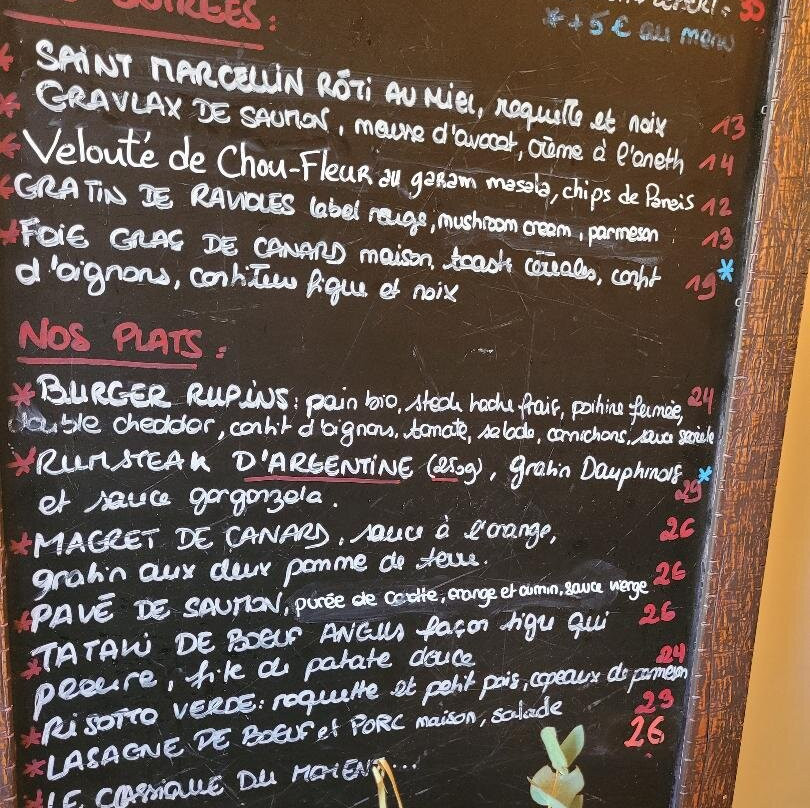 30
*+5€ au menu
* SAINT MARCELLIN RÔTI AU MIEL, roquette et noix 13
* GRAVLAX DE SAUMON, mousse d'avocat, crème à l'aneth 14
* Velouté de Chou-Fleur au garam masala, chips de Panais 12
* GRATIN DE RAVIOLES label rouge, mushroom cream, parmesan 13
* FOIE GRAS DE CANARD maison, toasts céréales, confit 19*
d'oignons, confiture figue et noix
NOS PLATS :
* BURGER RUPINS: pain bio, steak haché frais, poitrine fumée, 24
double cheddar, confit d'oignons, tomate, salade, cornichons, sauce
* RUMSTEAK D'ARGENTINE (250g), gratin Dauphinois 29*
et sauce gorgonzola.
* MAGRET DE CANARD, sauce à l'orange, 26
gratin aux deux pomme de terre.
* PAVÉ DE SAUMON, purée de carotte, orange et cumin, sauce vierge 26
* TATAKI DE BOEUF ANGUS façon tigre qui 26
pleure, frite de patate douce
* RISOTTO VERDE: roquette et petit pois, copeaux de parmesan 24
* LASAGNE DE BOEUF et PORC maison, salade 23
* LE CLASSIQUE DU MOMENT... 26